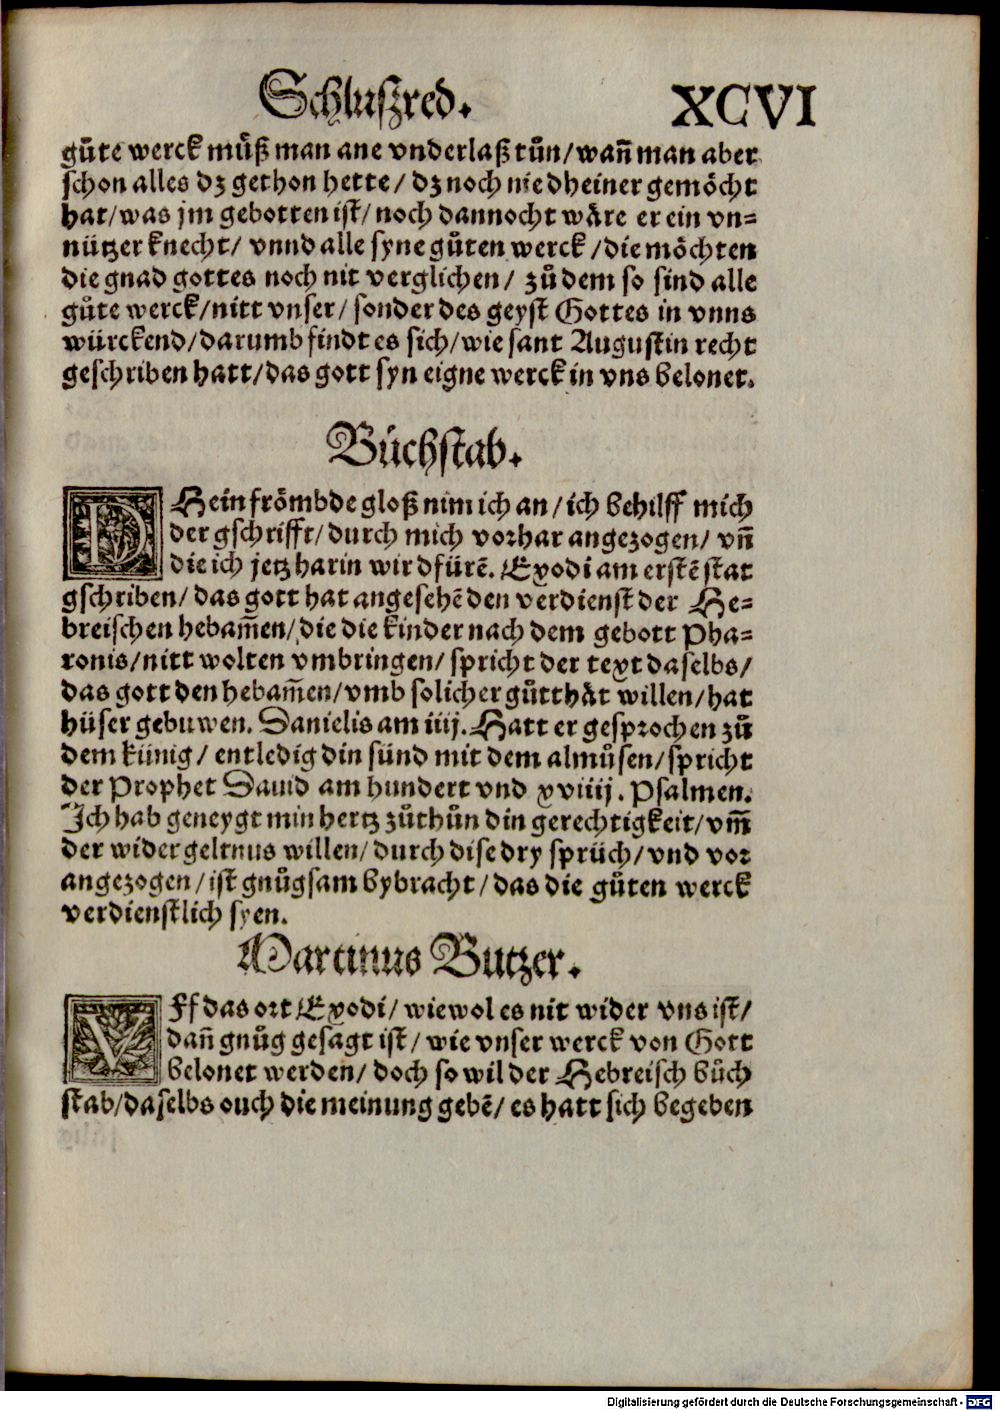 Schluszred. XCVI
gůte werck můß man ane vnderlaß tůn/wañ man aber
schon alles dz gethon hette/ dz noch nie dheiner gemöcht
hat/was jm gebotten ist/ noch dannocht wäre er ein vn-
nützer knecht/ vnnd alle syne gůten werck /die möchten
die gnad gottes noch nit verglichen/ zů dem so sind alle
gůte werck/nitt vnser/ sonder des geyst Gottes in vnns
würckend/darumb findt es sich/wie sant Augustin recht
geschriben hatt/das gott syn eigne werck in vns belonet.
Bůchstab.
DHein frömbde gloß nim ich an/ich behilff mich
der gschrifft/durch mich vorhar angezogen/ vñ
die ich jetz harin wird fürē. Exodi am erstē stat
gschriben/ das gott hat angesehē den verdienst der He-
breischen hebam̄en/die die kinder nach dem gebott Pha-
ronis/nitt wolten vmbringen/ spricht der text daselbs/
das gott den hebam̄en/vmb solicher gůtthät willen/hat
hüser gebuwen. Danielis am iiij. Hatt er gesprochen zů
dem künig/ entledig din sünd mit dem almůsen/spricht
der Prophet Dauid am hundert vnd xviiij. Psalmen.
Ich hab geneygt min hertz zůthůn din gerechtigkeit/vm̄
der widergeltnus willen/durch dise dry sprüch/vnd vor
angezogen/ist gnůgsam bybracht/das die gůten werck
verdienstlich syen.
Martinus Butzer.
VFf das ort Exodi/ wiewol es nit wider vns ist/
dañ gnůg gesagt ist/ wie vnser werck von Gott
belonet werden/ doch so wil der Hebreisch bůch
stab/daselbs ouch die meinung gebē/ es hatt sich begeben
Digitalisierung gefördert durch die Deutsche Forschungsgemeinschaft - DFG